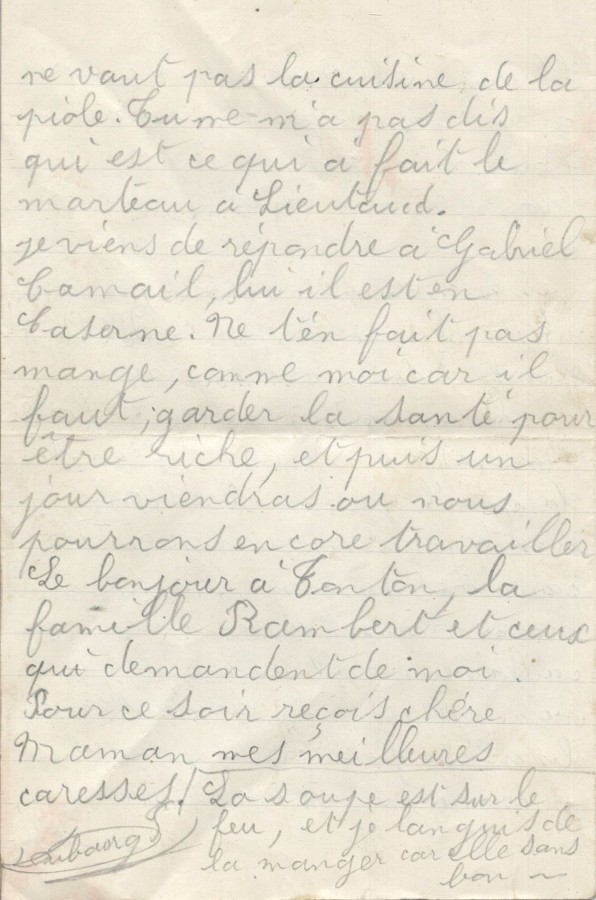 ne vaut pas la cuisine, de la
piole. Tu ne m'a pas dis
qui est ce qui a fait le
marteau a Lieutaud.
je viens de répondre a Gabriel
Camail, lui il est en
Caserne. Ne t'én fait pas
mange, comme moi car il
faut, garder la santé pour
être riche, et puis un
jour viendras ou nous
pourrons encore travailler
Le bonjour a Tonton, la
famille Rambert et ceux
qui demandent de moi.
Pour ce soir reçois chére
Maman mes meilleures
caresses! La soupe est sur le
feu, et je languis de
la manger car elle sans
bon ~